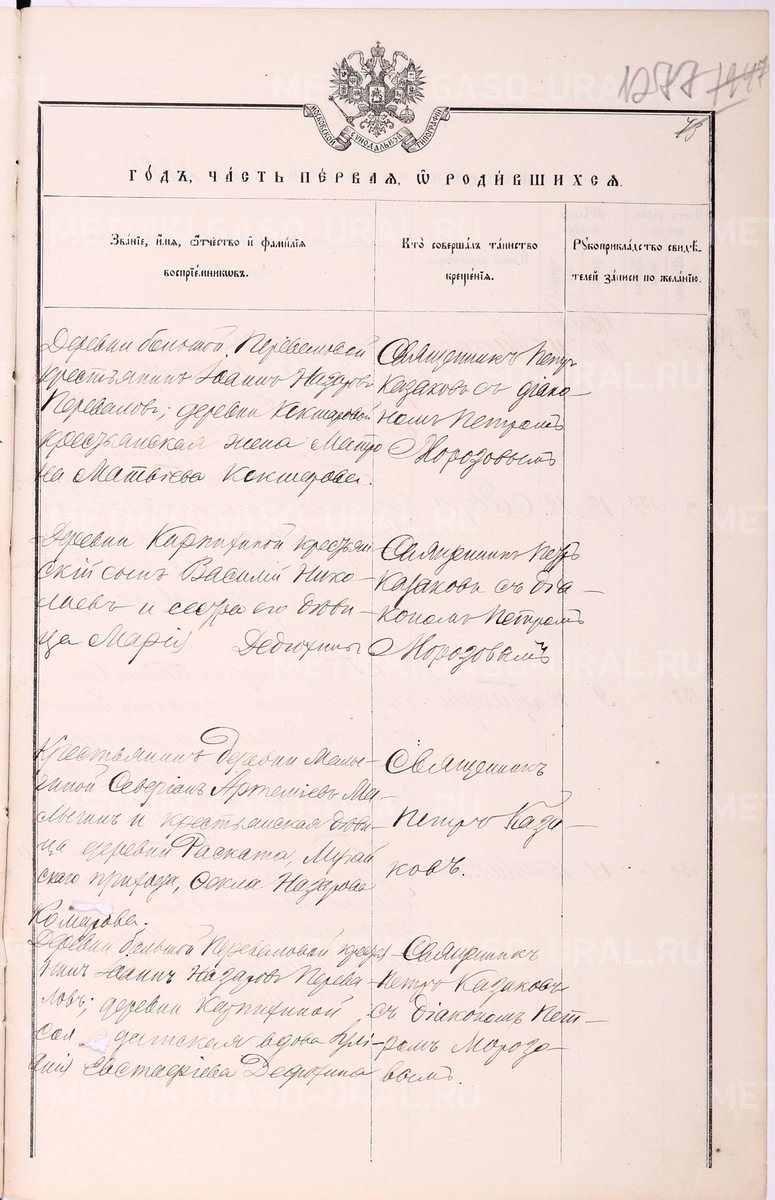 1277 1447
75
МОСКОВСКОЙ СѴНОДАЛЬНОЙ ТИПОГРАФІИ
ГО́ДЪ, ЧА́СТЬ ПЕ́РВАЯ, Ѽ РОДИ́ВШИХСѦ.
Зва́нїе, и҆́мѧ, ѻ҆́тчество и҆ фамѵ́лїѧ
воспрїе́мникѡвъ.
Кто̀ соверша́лъ та́инство
креще́нїѧ.
Рꙋкоприкла́дство свидѣ́-
телей за́писи по жела́нїю.
Деревни большой Переваловой
крестьянинъ Іоаннъ Назаровъ
Переваловъ; деревни Кокшаровой
крестьянская жена Матро
на Матвѣева Кокшарова.
Священникъ Петръ
Казаковъ съ діако-
номъ Петромъ
Морозовымъ
Деревни Карпихиной крестьян
скій сынъ Василій Нико-
лаевъ и сестра его дѣви-
ца Марія Дедюхины
Священникъ Петръ
Казаковъ съ діа-
кономъ Петромъ
Морозовымъ
Крестьянинъ деревни Малы-
гиной Северіанъ Артеміевъ Ма-
лыгинъ и крестьянская дѣви-
ца деревни Раската, Мугай
скаго прихода, Ѳекла Назарова
Комарова.
Священникъ
Петръ Каза-
ковъ.
Деревни большой Переваловой крестья-
нинъ Іоаннъ Назаровъ Перева-
ловъ; деревни Карпихиной
датская вдова Улі-
анія Евстафіева Дедюхина
Священникъ
Петръ Казаковъ
съ діакономъ Пет-
ромъ Морозо-
вымъ.
METRIKI.GASO-URAL.RU